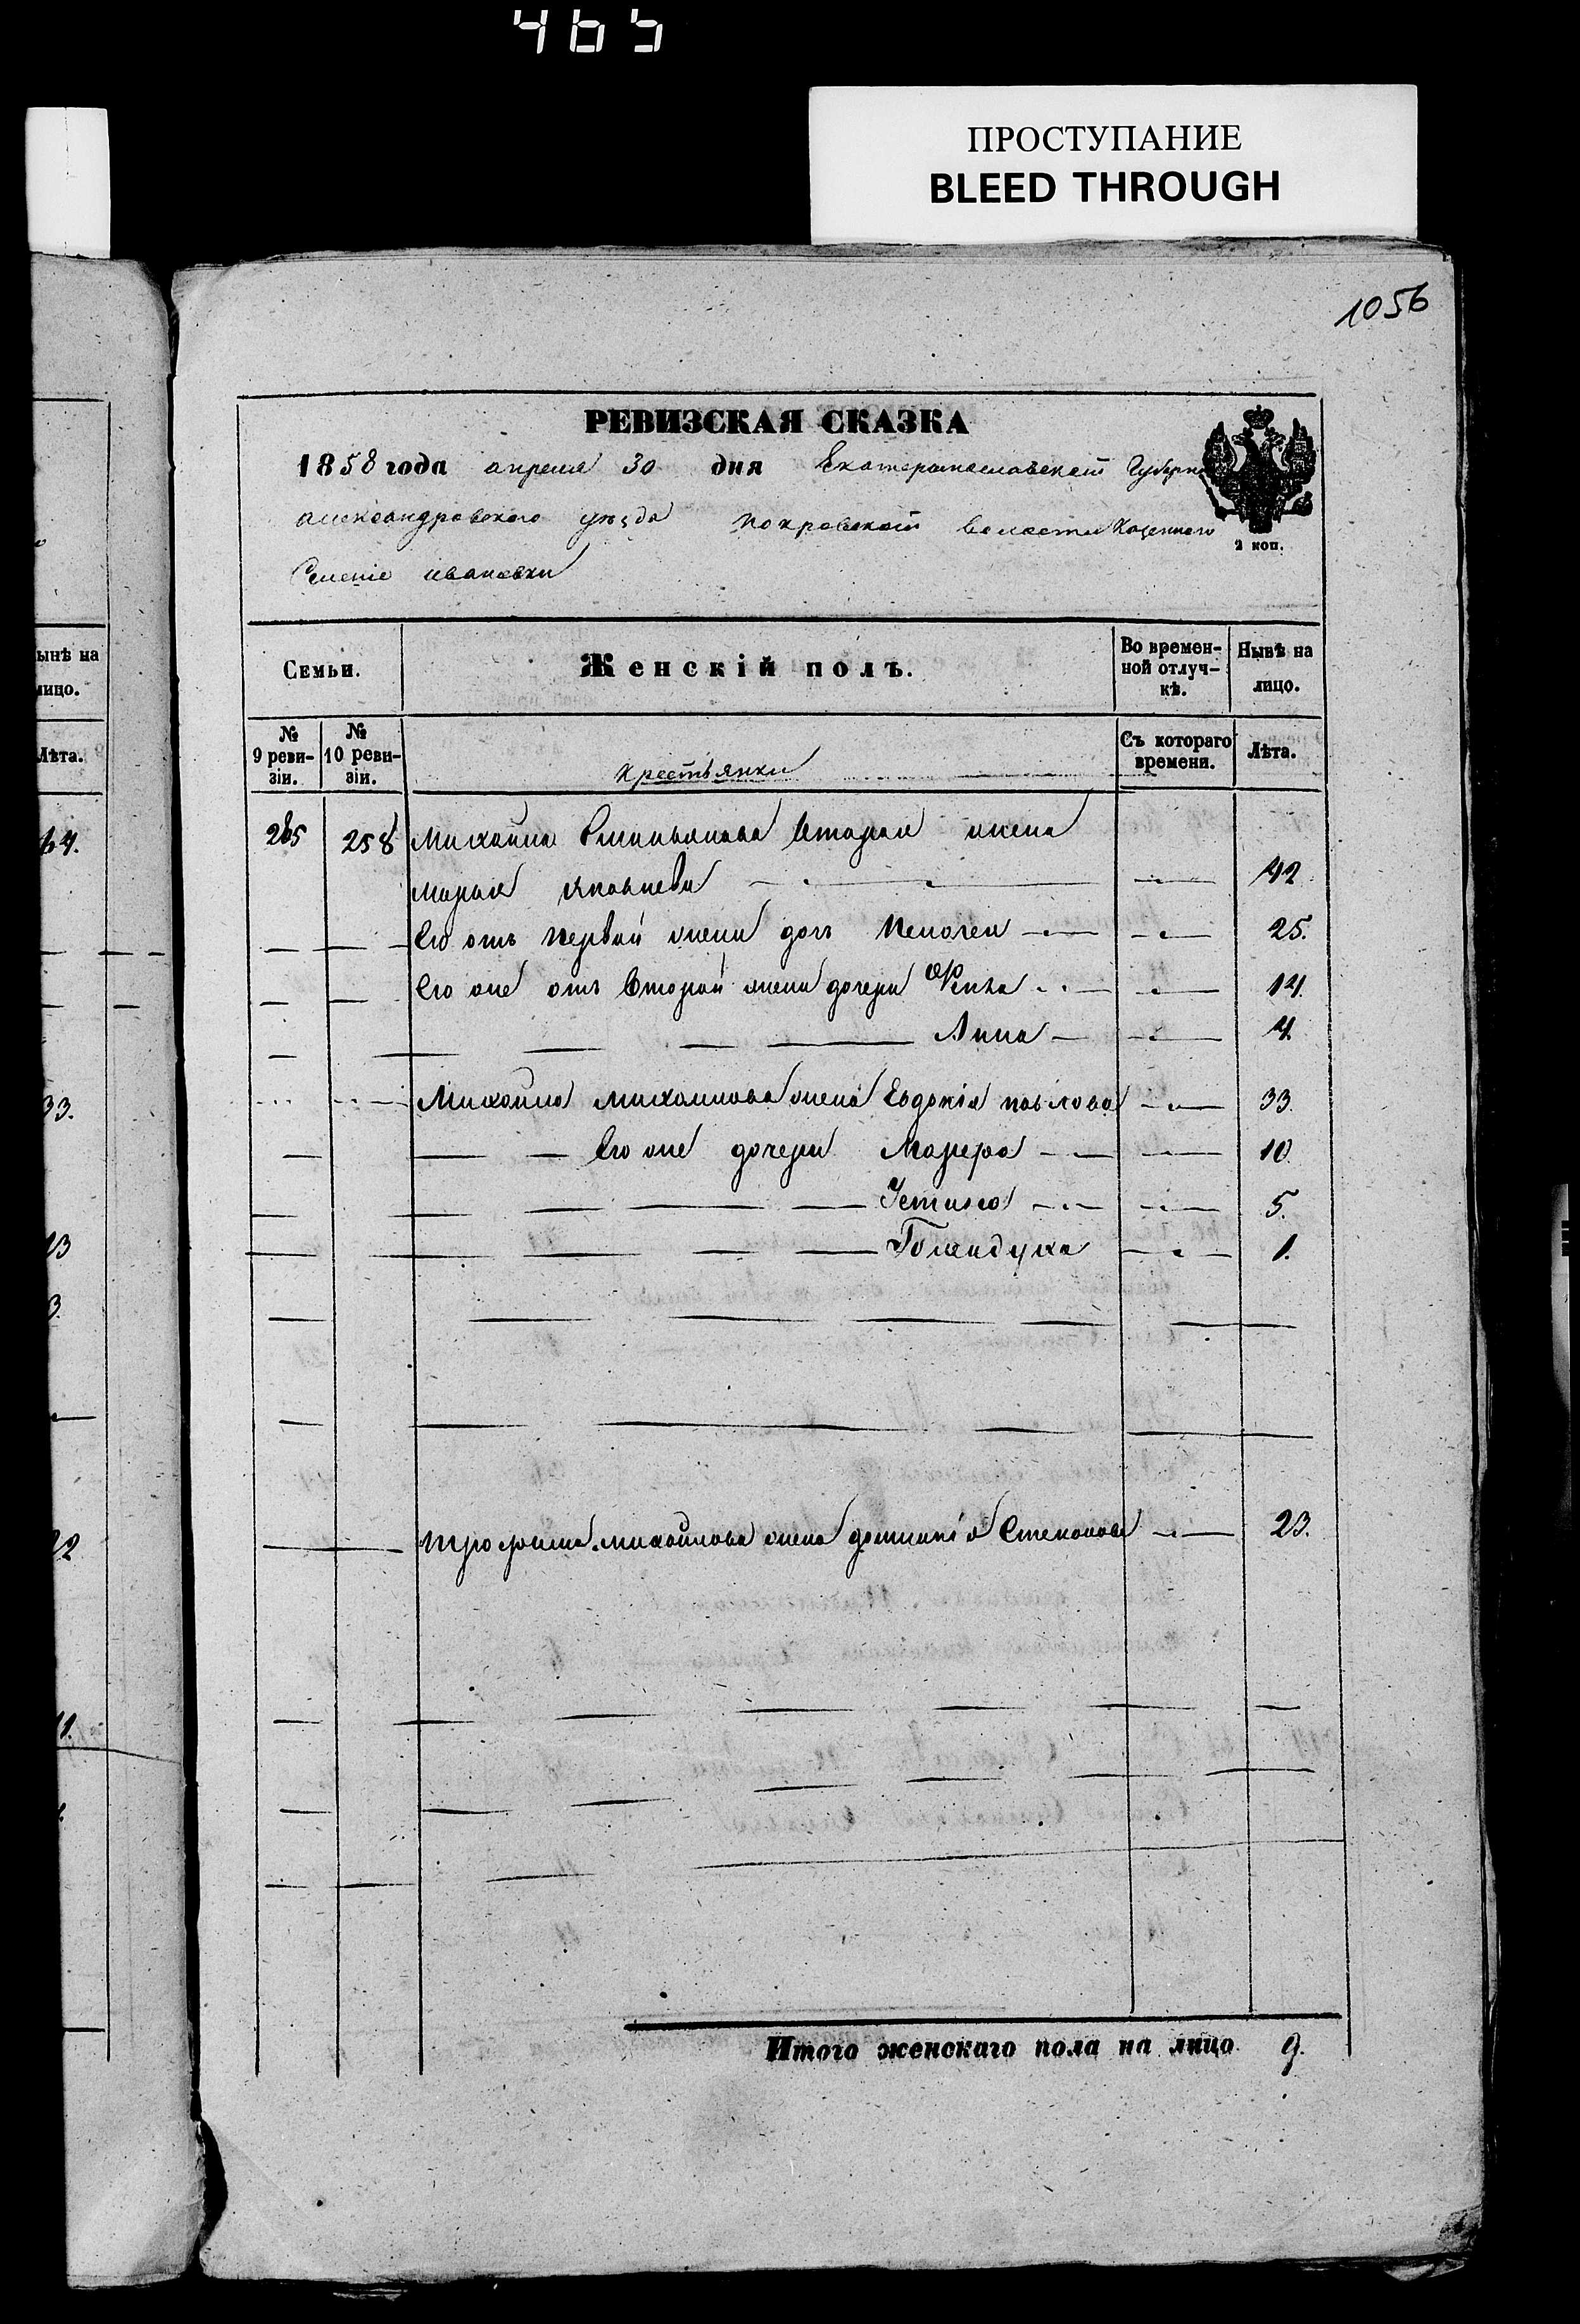 465
ПРОСТУПАНИЕ
BLEED THROUGH
1056
РЕВИЗСКАЯ СКАЗКА
1858 года апреля 30 дня Екатеринославской Губерн
александровского уѣзда покровской Волости Казенного
Селеніе ивановки
2 коп.
Семьи. Женскій полъ. Во времен-ной отлуч-кѣ. Нынѣ на лицо.
№ 9 реви-зіи. № 10 реви-зіи. Крестьянки Съ котораго времени. Лѣта.
265 258 Михайла Емильянова Вторая жена
марья Яковлева 42
Его отъ первой жены доч Пелагея 25.
Его же отъ Второй жены дочери 14.
Анна 4.
Михайла михайлова жена Евдокія павлова 33.
Его же дочери Марфа 10.
5.
1.
трофима михайлова жена Степанова 23.
Итого женскаго пола на лицо 9.
ынѣ на
лицо.
Лѣта.
64.
33.
13
3.